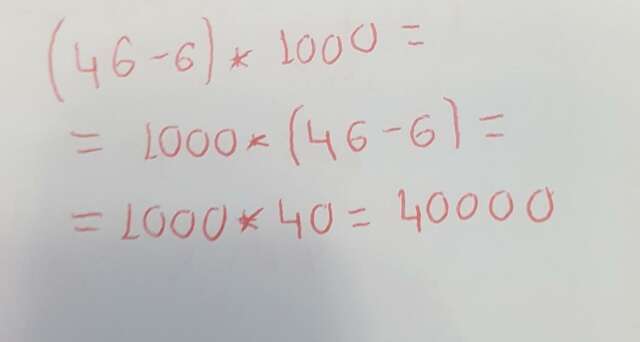 (46-6)* 1000 =
= 1000*(46-6) =
= 1000*40 = 40000